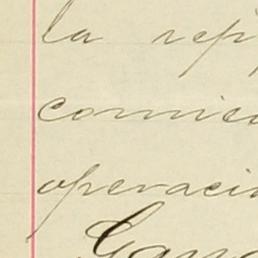 la rep
comie
operacio
Gana